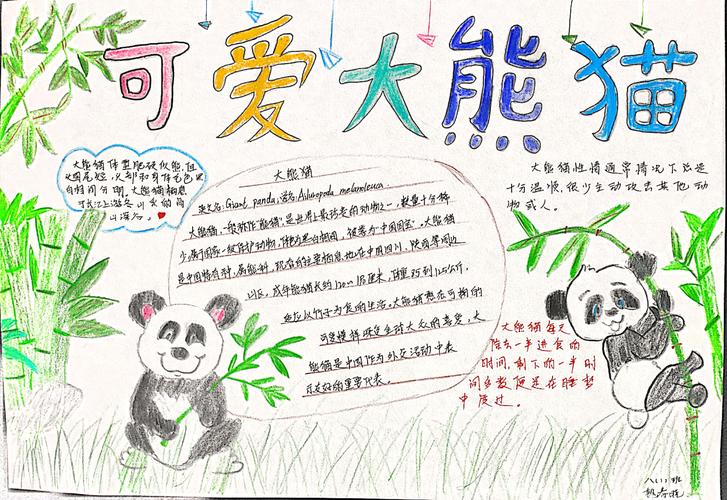 可爱大熊猫
大熊猫体型肥硕似熊,但
头圆尾短,头部和身体毛色黑
白相间分明,大熊猫栖息
于长江上游
山深谷。
大熊猫
英文名:Giant panda,学名:Ailuropoda melanoleuca
大熊猫,一般称作"熊猫",是世界上最珍贵的动物之一,数量十分稀
少,属于国家一级保护动物,体色为黑白相间,被誉为"中国国宝"。大熊猫
是中国特有种,属熊科,现存的主要栖息地在中国四川、陕西等周边
山区,成年熊猫长约120~18厘米,体重约到125公斤,
适应以竹子为食的生活。大熊猫憨态可掬的
可爱模样 全球大众的喜爱,大
熊猫是中国作为外交活动中表
示友好的重要代表。
大熊猫性情通常情况下总是
十分温顺,很少主动攻击其他动
物或人。
大熊猫每天
除去一半进食的
时间,剩下的一半时
间多数便是在睡梦
中度过。
八(1)班